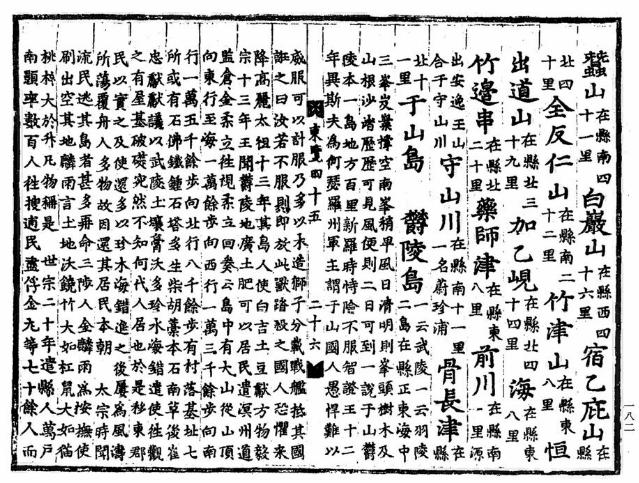 蠶山在縣南四十一里白巖山在縣西四十六里宿乙庇山在縣
北四十里全反仁山在縣南十二里竹津山在縣東八里恒
出道山在縣北三十九里加乙峴在縣北四十四里海在縣東八里
竹邊串在縣北二十里藥師津在縣東八里前川在縣南一里源
出安逸王山合于守山川守山川在縣南十一里一名蔚珍浦骨長津在縣
北十一里于山島 鬱陵島一云武陵一云羽陵二島在縣正東海中
三峯岌嶪撐空南峯稍卑風日清明則峯頭樹木及
山根沙渚歷歷可見風便則二日可到一說于山鬱
陵本一島地方百里新羅時恃險不服智證王十二
年異斯夫爲何瑟羅州軍主謂于山國人愚悍難以
東覽四十五 二十六
威服可以計服乃多以木造獅子分載戰艦抵其國
誑之曰汝若不服則即放此獸踏殺之國人恐懼來
降高麗太祖十三年其島人使白吉土豆獻方物毅
宗十三年王聞鬱陵地廣土肥可以居民遣溟州道
監倉金柔立往視柔立回奏云島中有大山從山頂
向東行至海一萬餘步向西行一萬三千餘步向南
行一萬五千餘步向北行八千餘步有村落基址七
所或有石佛鐵鍾石塔多生柴胡藁本石南草後崔
忠獻獻議以武陵土壤膏沃多珍木海錯遣使往觀
之有屋基破礎宛然不知何代人居也於是移東郡
民以實之及使還多以珍木海錯進之後屢爲風濤
所蕩覆舟人多物故因還其居民本朝 太宗時聞
流民逃其島者甚多再命三陟人金麟雨爲按撫使
刷出空其地麟雨言土地沃饒竹大如杠鼠大如猫
桃核大於升凡物稱是 世宗二十年遣縣人萬戶
南顥率數百人往搜逋民盡俘金丸等七十餘人而
一八二